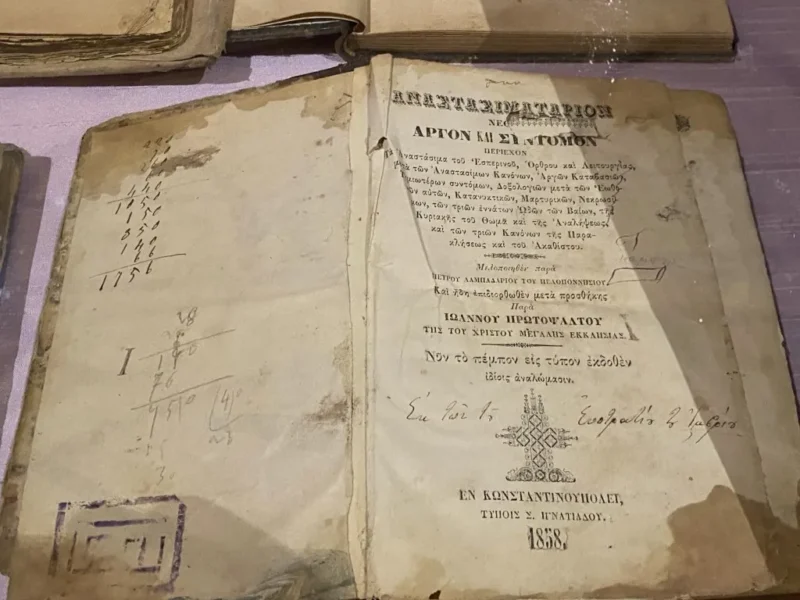 440
1050
850
140
66
1756
28
ΑΝΑΣΤΑΣΙΜΑΤΑΡΙΟΝ
ΝΕΟΝ
ΑΡΓΟΝ ΚΑΙ ΣΥΝΤΟΜΟΝ
ΠΕΡΙΕΧΟΝ
Τὰ Ἀναστάσιμα τοῦ Ἑσπερινοῦ, Ὄρθρου καὶ Λειτουργίας,
μετὰ τῶν Ἀναστασίμων Κανόνων, Ἀργῶν Καταβασιῶν,
συντόμων, Δοξολογιῶν μετὰ τῶν Ἑωθι-
νῶν αὐτῶν, Κατανυκτικῶν, Μαρτυρικῶν, Νεκρωσί-
μων, τῶν τριῶν ἐννάτων Ὠδῶν τῶν Βαΐων, τῆς
Κυριακῆς τοῦ Θωμᾶ καὶ τῆς Ἀναλήψεως,
καὶ τῶν τριῶν Κανόνων τῆς Παρα-
κλήσεως καὶ τοῦ Ἀκαθίστου.
Μελοποιηθὲν παρὰ
ΠΕΤΡΟΥ ΛΑΜΠΑΔΑΡΙΟΥ ΤΟΥ ΠΕΛΟΠΟΝΝΗΣΙΟΥ.
Καὶ ἤδη ἐπιδιορθωθὲν μετὰ προσθήκης
Παρὰ
ΙΩΑΝΝΟΥ ΠΡΩΤΟΨΑΛΤΟΥ
ΤΗΣ ΤΟΥ ΧΡΙΣΤΟΥ ΜΕΓΑΛΗΣ ΕΚΚΛΗΣΙΑΣ.
Νῦν τὸ πέμπτον εἰς τύπον ἐκδοθὲν
ἰδίοις ἀναλώμασιν.
Ἐκ τῶν τοῦ
ΕΝ ΚΩΝΣΤΑΝΤΙΝΟΥΠΟΛΕΙ,
ΤΥΠΟΙΣ Σ. ΙΓΝΑΤΙΑΔΟΥ.
1858.